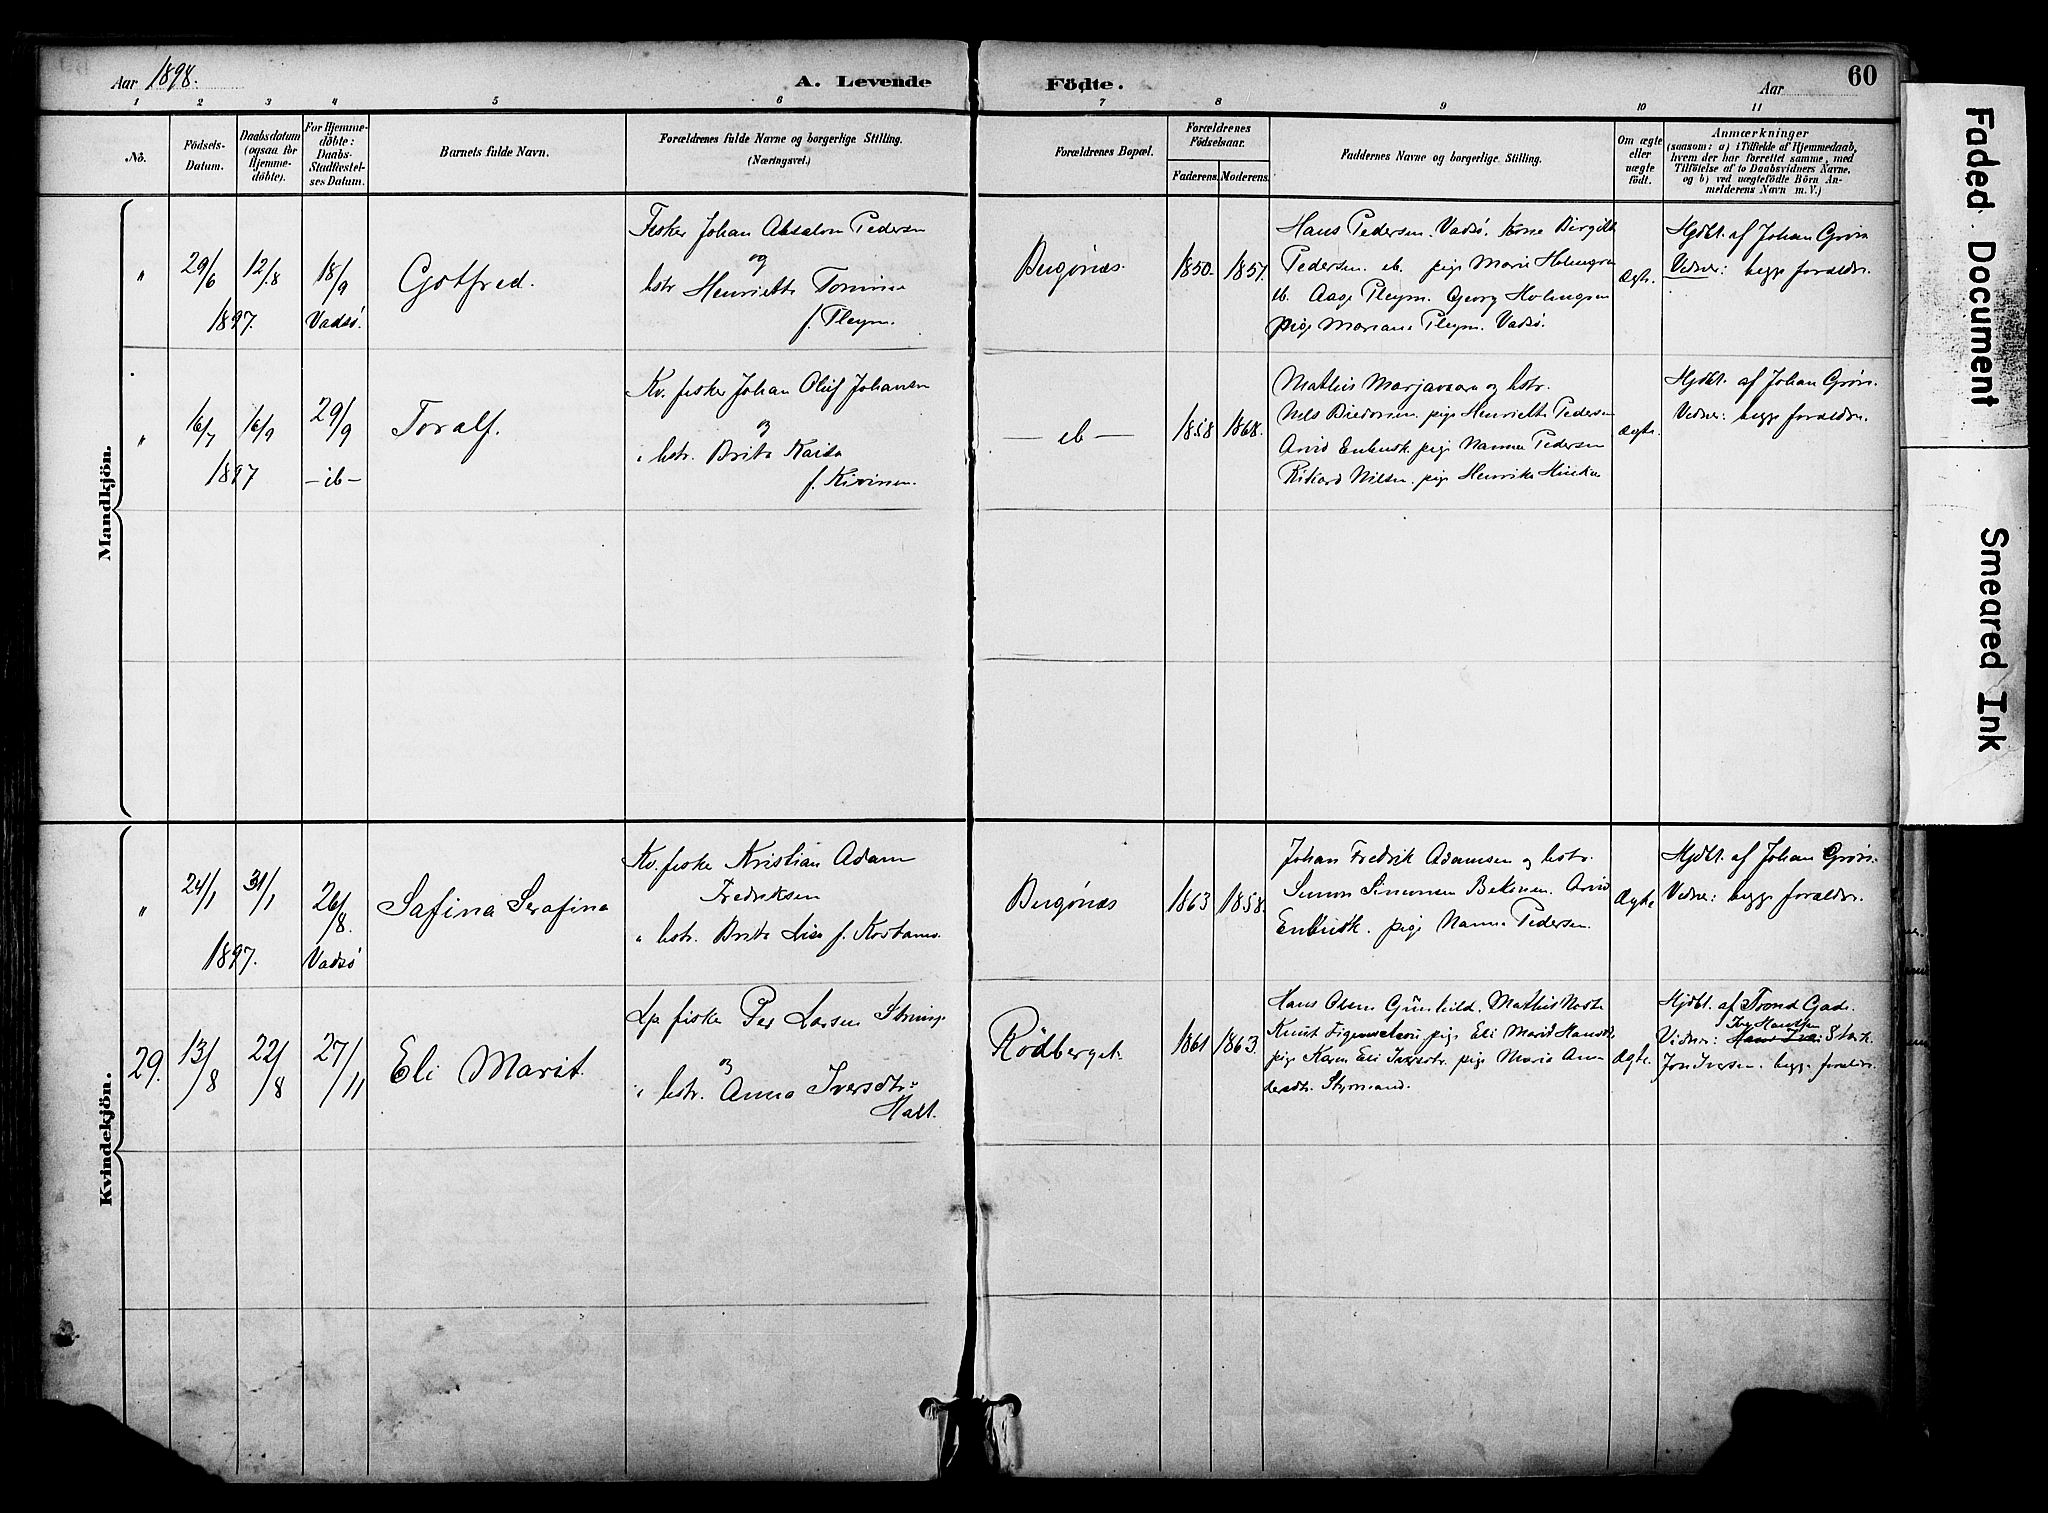 Aar 1898.
A. Levende
Födte.
Aar
60
1 2 3 4 5 6 7 8 9 10 11
No.
Födsels-
Datum.
Daabsdatum
(ogsaa for
Hjemme-
döbte).
For Hjemme-
döbte:
Daabs-
Stadfæstel-
ses Datum.
Barnets fulde Navn.
Forældrenes fulde Navne og borgerlige Stilling.
(Næringsvei.)
Forældrenes Bopæl.
Forældrenes
Födselsaar.
Faderens. Moderens.
Faddernes Navne og borgerlige Stilling.
Om ægte
eller
uægte
födt.
Anmærkninger
(saasom: a) i Tilfælde af Hjemmedaab,
hvem der har forrettet samme, med
Tilföielse af to Daabsvidners Navne,
og b) ved uægtefödte Börn An-
melderens Navn m. V.)
Mandkjön.
"
29/6
1897.
12/8
18/9
Vadsö.
Gotfred.
Fisker Johan Absalon Pedersen
og
hstr Henriette
f. Pleym.
Bugönæs.
1850.
1857.
Hans Pedersen. Vadsö. Kone Birgitte
Pedersen. ib. pige Marie Holmgren
ib. Aage Pleym. Georg Holmgren
pige Mariane Pleym. Vadsö.
Ægte.
Hjdbt. af Johan Grön
Vidner: begge forældre.
"
16/7
1897
16/9
29/9
- ib -
Toralf.
Kv. fisker Johan Oluf Johansen
og
" hstr. Brita Kaisa
f. Kivinen.
- ib -
1858
1868.
Mathis Marjavaara og hstr.
Nils pige Henriette Pedersen
Arvid Enbusk. pige Nanna Pedersen
Rikard Nilsen. pige Henrikke
Ægte.
Hjdbt. af Johan Grön.
Vidner: begge forældre.
Kvindekjön.
"
24/1
1897.
31/1
26/8.
Vadsö
Safina Serafina
Kv. fisker Kristian Adam
Fredriksen
" hstr. Brita Lisa f. Kostamo.
Bugönæs
1863
1858.
Johan Fredrik Adamsen og hstr.
Simon Simonsen Bekinen. Arvid
Enbusk. pige Nanna Pedersen.
Ægte
Hjdbt. af Johan Grön.
Vidner: begge forældre.
29.
13/8
22/8
27/11
Eli Marit.
Lp fisker Per Larsen
og
" hstr. Anna Iversdtr.
Halt.
Rödberget.
1861
1863.
Hans Olsen Gunhild. Mathis
Knut pige Eli Marit Hansdtr.
pige Karen Eli Iversdtr. pige Marit An-
dersdtr. Styrmand.
Ægte.
Hjdbt. af Trond Gad.
Iver Hansen
Vidner: Stark
Jon Iversen. begge forældre.
Faded Document
Smeared Ink